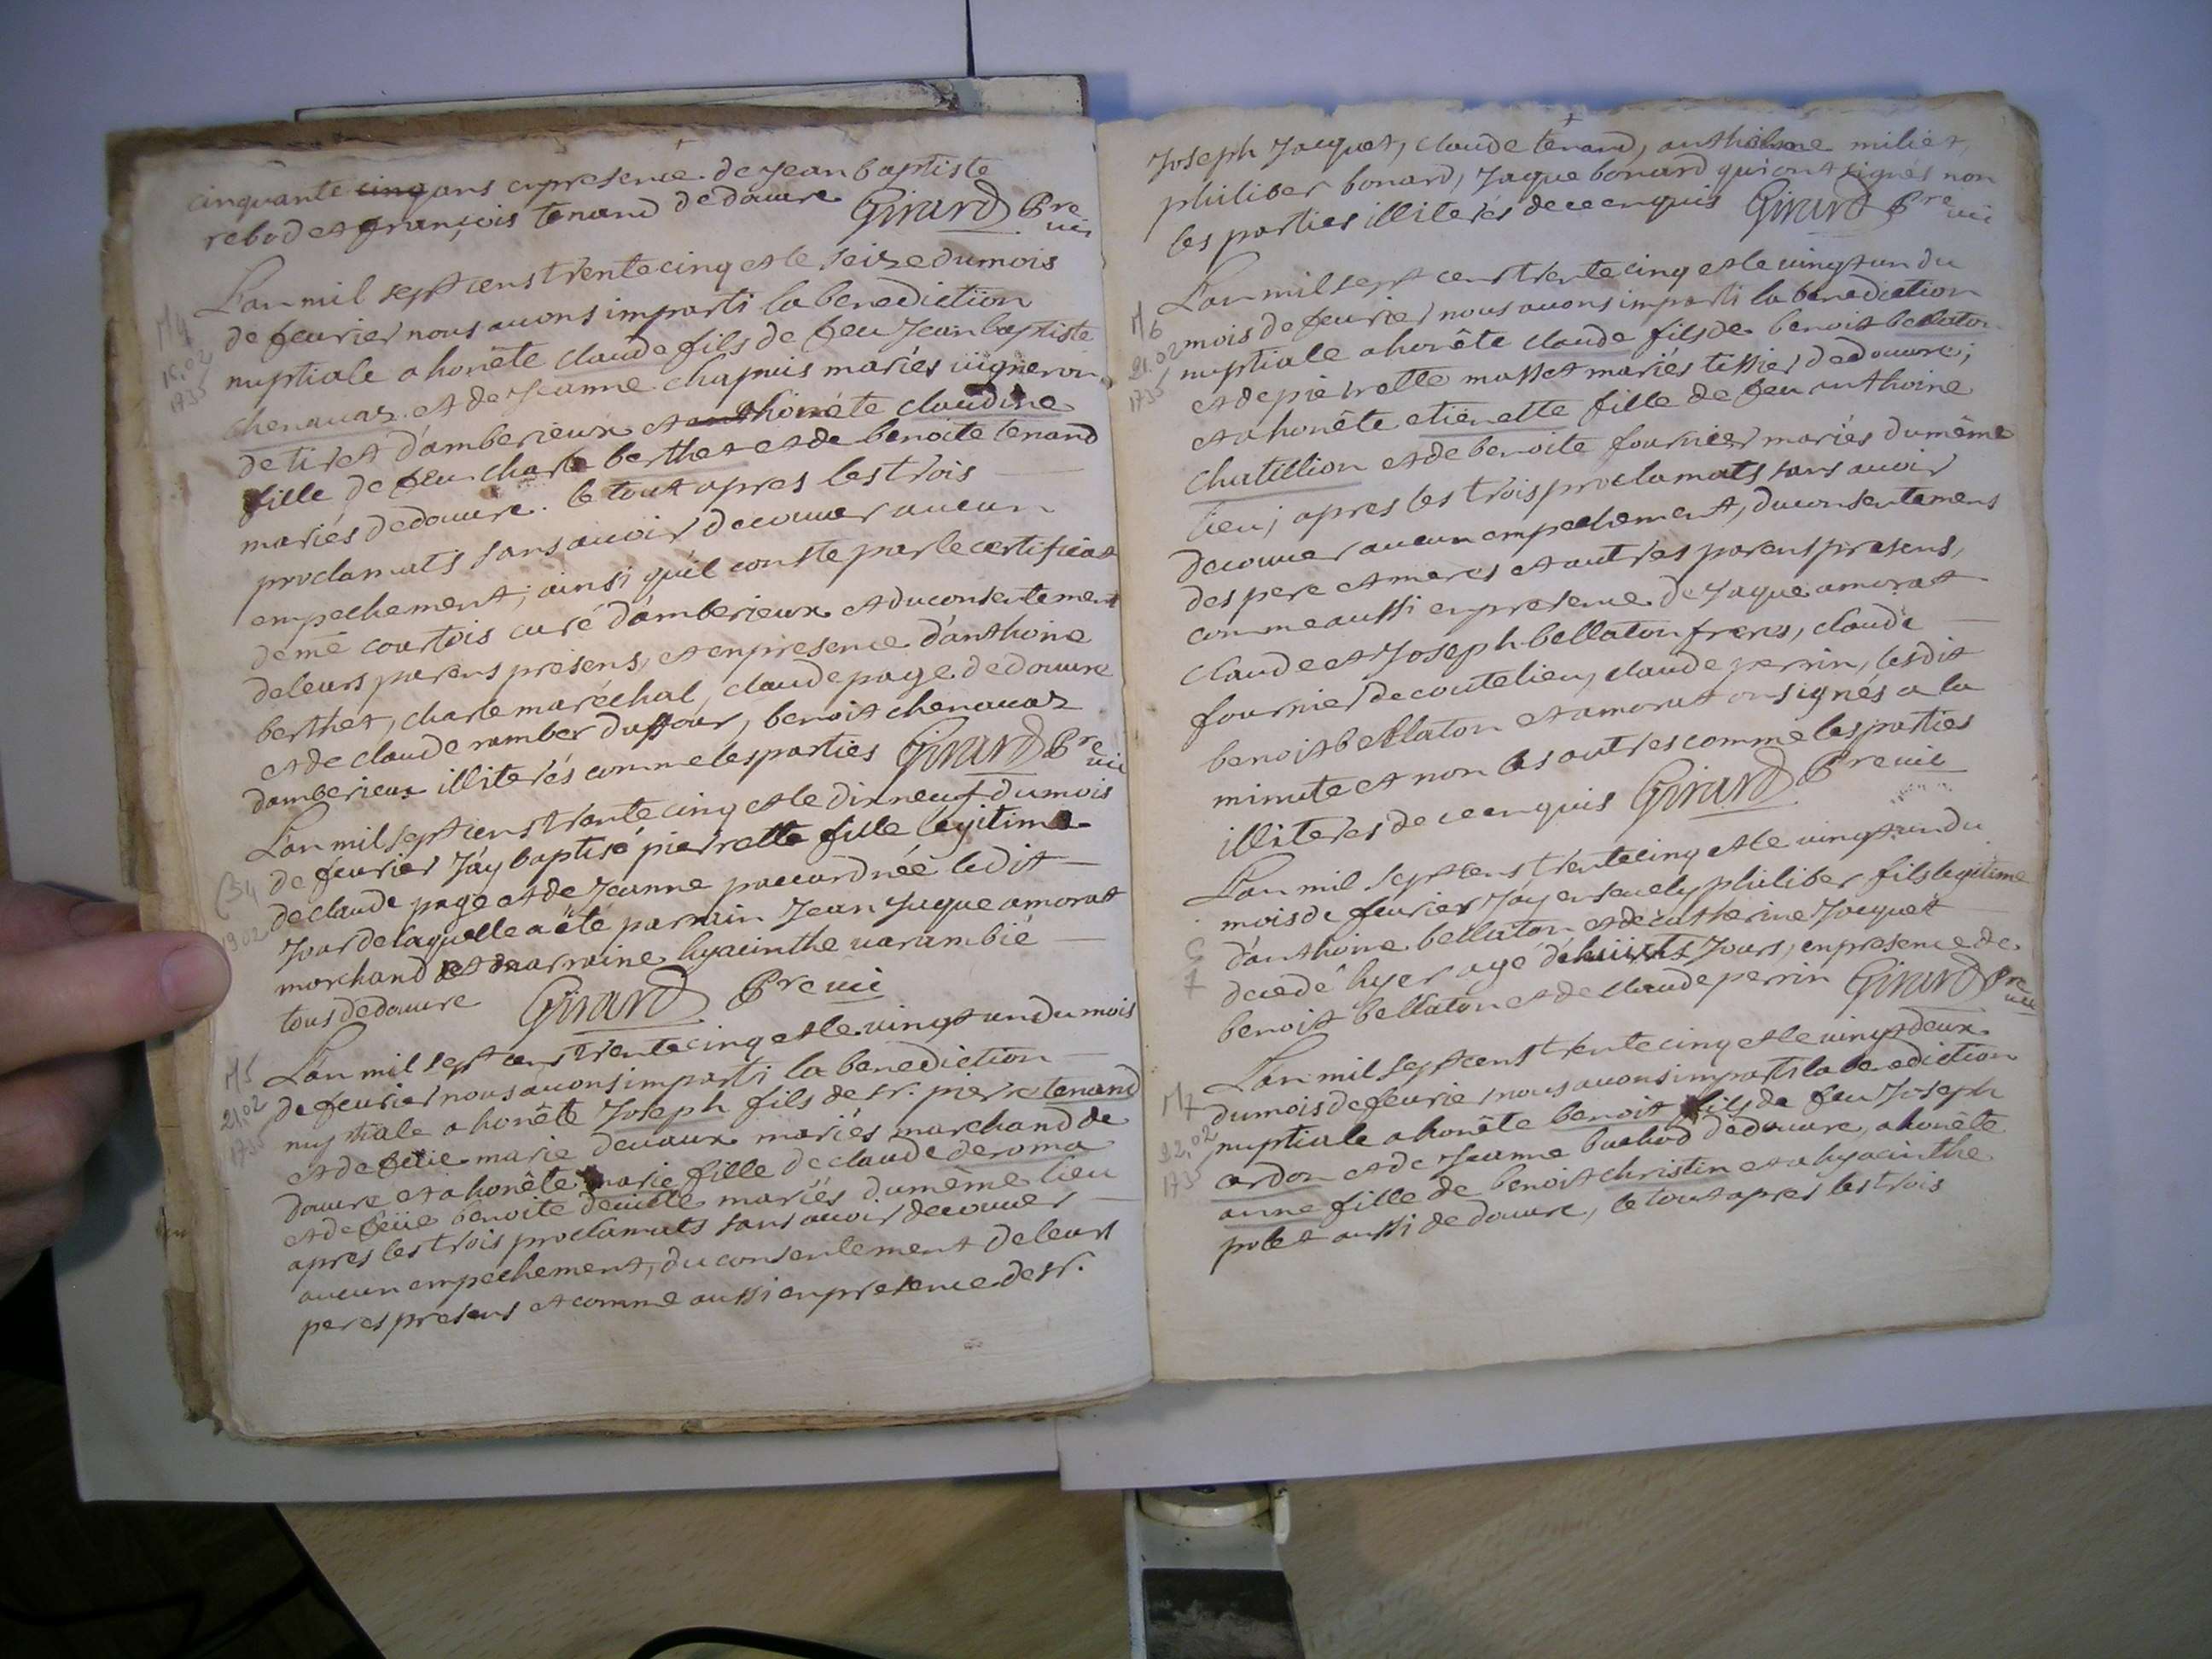 cinquante cinq ans en presence de Jean baptiste
rebod et françois tenand de douure Girard Pre vic
M4
16.02
1735
L'an mil sept cens trente cinq et le seize du mois
de feurier nous auons imparti la benediction
nuptiale a honête claude fils de feu Jean baptiste
chenauaz et de Jeanne chapuis mariés uigneron
de tiret d'amberieux et honéte claudine
fille de feu charle berthet et de benoite tenand
mariés de douure. le tout apres les trois
proclamats sans auoir decouuer aucun
empechement, ainsi qu'il conste par le certificat
de me courtois curé d'amberieux et du consentement
de leurs parens presens, et en presence d'anthoine
berthet, charle maréchal, claude page de douure
et de claude ramber dufour, benoit chenauaz
d'amberieux illiterés comme les parties Girard Pre vic
B4
19.02
L'an mil sept cens trente cinq et le dix neuf du mois
de feurier J'ay baptisé pierrette fille légitime
de claude page et de Jeanne paccard née le dit
Jour de laquelle a été parrain Jean Jaque amorat
marchand et marraine hyacinthe uarambié
tous de douure Girard Pre vic
M5
21.02
1735
L'an mil sept cens trente cinq et le uingt un du mois
de feurier nous auons imparti la benediction
nuptiale a honête Joseph fils de sr. pierre tenand
et de feüe marie deuaux mariés marchand de
douure et a honête marie fille de claude deroma
et de feüe benoite deuille mariés du même lieu
apres les trois proclamats sans auoir decouuer
aucun empechement, du consentement de leurs
peres presens et comme aussi en presence de sr.
Joseph Jacquet, claude tenand, anthelme miliet,
philiber bonard, Jaque bonard qui ont signés non
les parties illiterés de ce enquis Girard Pre vic
M6
21.02
1735
L'an mil sept cens trente cinq et le uingt un du
mois de feurier nous auons imparti la benediction
nuptiale a honête claude fils de benoit bellaton
et de pierrette masset mariés tissier de douure,
et a honête etienette fille de feu anthoine
chatillion et de benoite fournier mariés du même
lieu, apres les trois proclamats sans auoir
decouuer aucun empechement, du consentemens
des pere et meres et autres parens presens,
comme aussi en presence de Jaque amorat
claude et Joseph bellaton freres, claude
fournier de coutelieu, claude perrin, lesdit
benoit bellaton et amorat on signés a la
minute et non les autres comme les parties
illiteres de ce enquis Girard Pre vic
S
7
L'an mil sept cens trente cinq et le uingt un du
mois de feurier J'ay enseuely philiber fils legitime
d'anthoine bellaton et de catherine Jacquet
decedé hyer agé de huict Jours, en presence de
benoit bellaton et de claude perrin Girard Pre vic
M7
22.02
1735
L'an mil sept cens trente cinq et le uingt deux
du mois de feurier nous auons imparti la benediction
nuptiale a honête benoit fils de feu Joseph
cardon et de Jeanne buchod de douure, a honête
anne fille de benoit christin et a hyacinthe
polet aussi de douure, le tout apres les trois